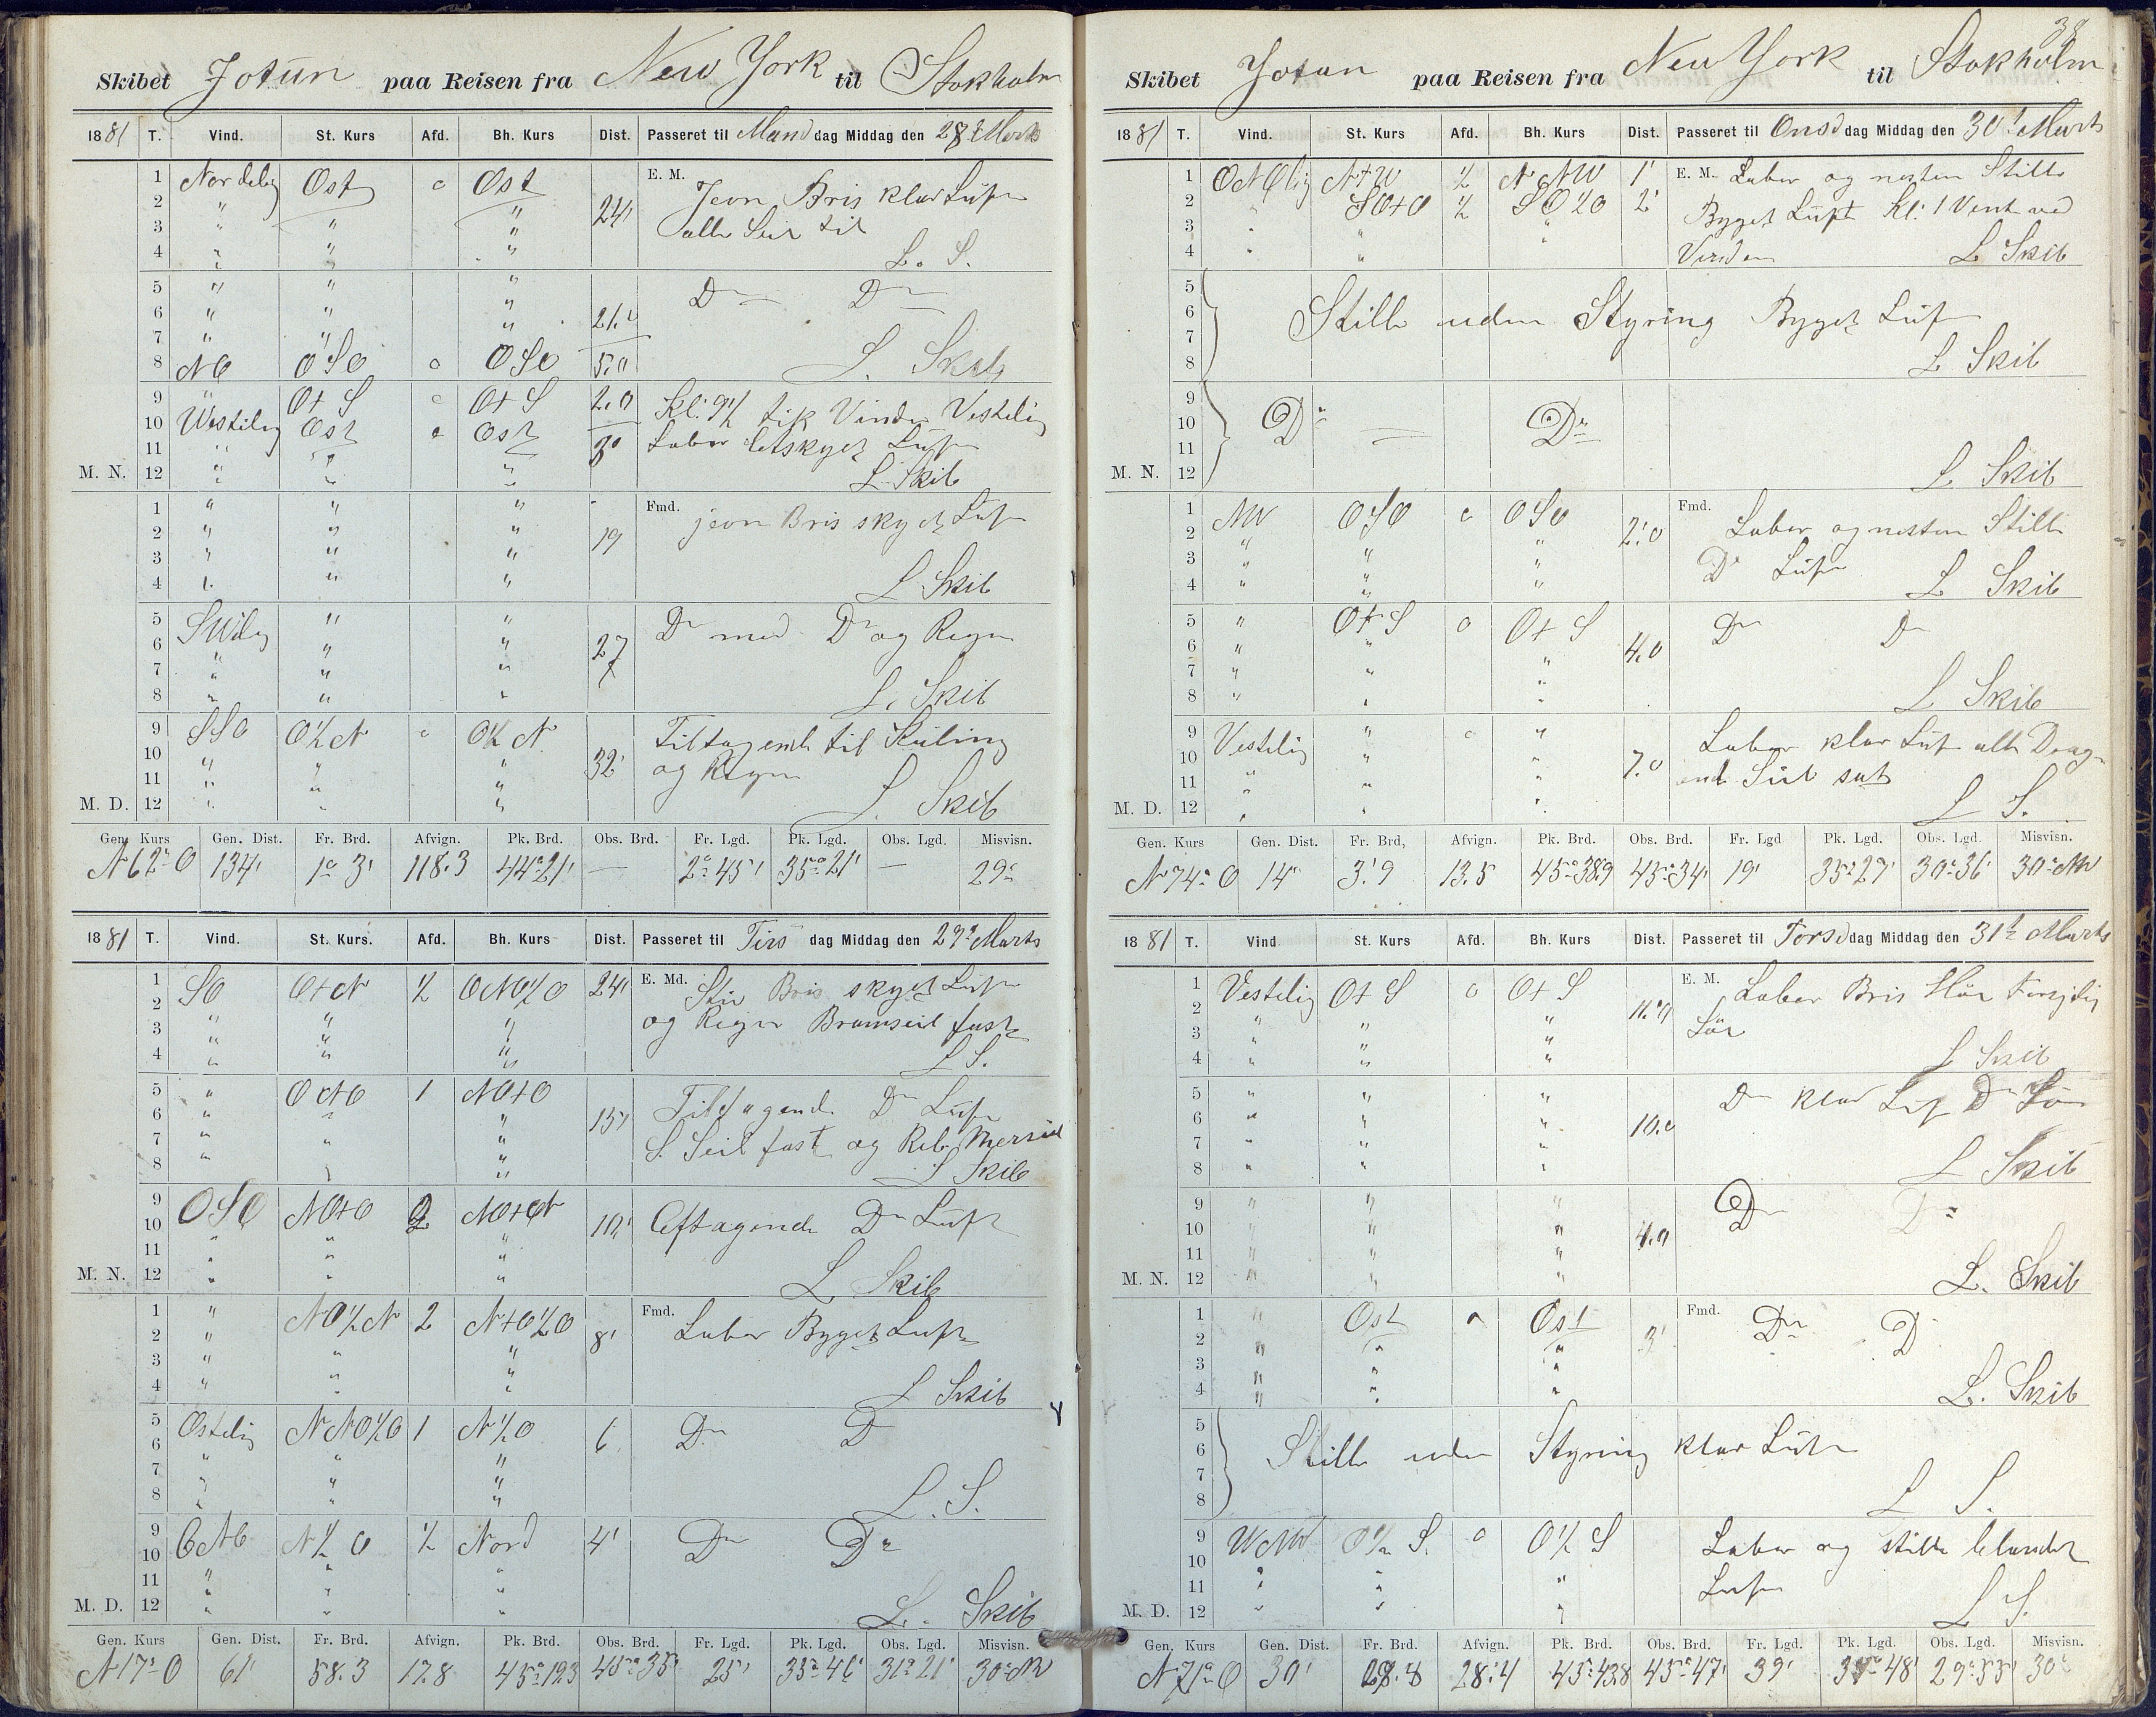 Skibet Jotun paa Reisen fra New York til Stokholm
1881 T. Vind. St. Kurs Afd. Bh. Kurs Dist. Passeret til Mandag Middag den 28de Marts
1 Nordelig Ost 0 Ost E. M. Jevn Bris klar Luft
2 " " " 24' alle Seil til
3 " " "
4 " " " L. S.
5 " " " Do Do
6 " " " 21.0
7 " " "
8 NO OSO 0 OSO 5.0 L. Skib
9 " O+S 0 O+S 2.0 Kl: 9½ fik Vinden Vestelig
10 Westelig Ost 0 Ost Laber letskyet Luft
11 " " "
M. N. 12 " " " L Skib
1 " " " Fmd. jevn Bris skyet Luft
2 " " " 19
3 " " "
4 " " " L Skib
5 SWlig " " Do med Do og Regn
6 " " " 27
7 " " "
8 " " " L. Skib
9 SSO O½N 0 O½N Tiltagende til Kuling
10 " " " 32' og Regn
11 " " "
M. D. 12 " " " L. Skib
Gen. Kurs Gen. Dist. Fr. Brd. Afvign. Pk. Brd. Obs. Brd. Fr. Lgd. Pk. Lgd. Obs. Lgd. Misvisn.
N62°O 134' 1° 3' 118.3 44°21' — 2°45' 35°21' — 29°
1881 T. Vind. St. Kurs. Afd. Bh. Kurs Dist. Passeret til Tirsdag Middag den 29de Marts
1 SO O+N ½ ONO½O 24' E. Md. Stiv Bris skyet Luft
2 " " " og Regn Bramseil fast
3 " " "
4 " " " L S.
5 " ONO 1 NO+O Tiltagende Do Luft
6 " " " 15' S. Seil fast og Reb. Mersseil
7 " " "
8 " " " L Skib
9 OSO NO+O 2 NO+N Aftagende Do Luft
10 " " " 10'
11 " " "
M. N. 12 " " " L Skib
1 " NO½N 2 N+O½O Fmd. Laber Byget Luft
2 " " " 8'
3 " " "
4 " " " L Skib
5 Ostelig NNO½O 1 N½O 6 Do Do
6 " " "
7 " " "
8 " " " L. S.
9 ONO N½O ½ Nord 4' Do Do
10 " " "
11 " " "
M. D. 12 " " " L. Skib
Gen. Kurs Gen. Dist. Fr. Brd. Afvign. Pk. Brd. Obs. Brd. Fr. Lgd. Pk. Lgd. Obs. Lgd. Misvisn.
N17°O 61' 58.3 17.8 45°19.3 45°35' 25' 35°46' 31°21' 30°NW
38
Skibet Jotun paa Reisen fra New York til Stokholm
1881 T. Vind. St. Kurs Afd. Bh. Kurs Dist. Passeret til Onsddag Middag den 30t Marts
1 ONOlig N+W ½ NNW 1' E. M. Laber og nesten Stille
2 " SO+O ½ SO½O 2' Byget Luft Kl: 1 Vent ved
3 " " " Vinden
4 " " L Skib
5
6 Stille uden Styring Byget Luft
7
8 L Skib
9
10 Do Do
11
M. N. 12 L Skib
1 NW OSO 0 OSO Fmd. Laber og nesten Stille
2 " " " 2.0
3 " " " Do Luft
4 " " " L Skib
5 " O+S 0 O+S Do Do
6 " " 4.0
7 " " "
8 " " " L Skib
9 Vestelig " 0 " Laber klar Luft alle Drag-
10 " " " 7.0 ende Seil sat
11 " " "
M. D. 12 " " " L S.
Gen. Kurs Gen. Dist. Fr. Brd, Afvign. Pk. Brd. Obs. Brd. Fr. Lgd Pk. Lgd. Obs. Lgd. Misvisn.
N74°O 14' 3.'9 13.5 45°38.9 45°34' 19' 35°27' 30°36' 30°NW
1881 T. Vind. St. Kurs. Afd. Bh. Kurs Dist. Passeret til Torsddag Middag den 31t Marts
1 Vestelig O+S 0 O+S E. M. Laber Bris
2 " " " 11.0
3 " " "
4 " " " L Skib
5 " " " Do klar Luft Do
6 " " " 10.0
7 " " "
8 " " " L Skib
9 " " " Do Do
10 " " " 4.0
11 " " "
M. N. 12 " " " L. Skib
1 " Ost Ost Fmd. Do Do
2 " " " 3'
3 " " "
4 " " " L. Skib
5
6 Stille uden Styring klar Luft
7
8 L S.
9 WNW O½S. 0 O½S Laber og stille blandet
10 " " " Luft
11 " " "
M. D. 12 " " " L S.
Gen. Kurs Gen. Dist. Fr. Brd. Afvign. Pk. Brd. Obs. Brd. Fr. Lgd. Pk. Lgd. Obs. Lgd. Misvisn.
N71°O 30' 28.4 45°43.8 45°47' 39' 29°53' 30°